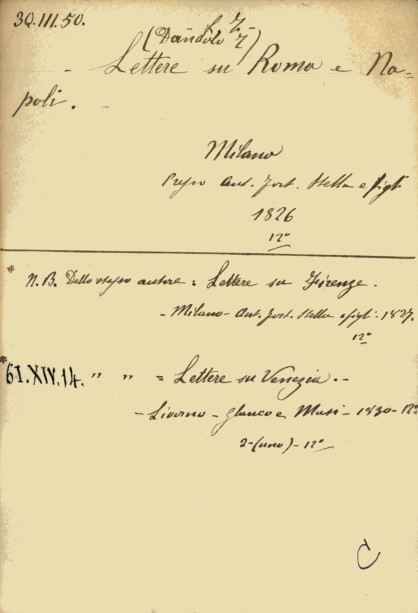 30.III.50.
(Dandolo T.)
- Lettere su Roma e Na=
poli. -
Milano
Presso Ant. Fort. Stella e figli
1826
12º
* N. B. Dello stesso autore = Lettere su Firenze.
- Milano - Ant. Fort. Stella e figli. 1827.
12º
* 61.XIV.14. " " = Lettere su Venezia. -
- Livorno - Glauco e Masi - 1830 - 12º
2 - (uno) - 12º
C